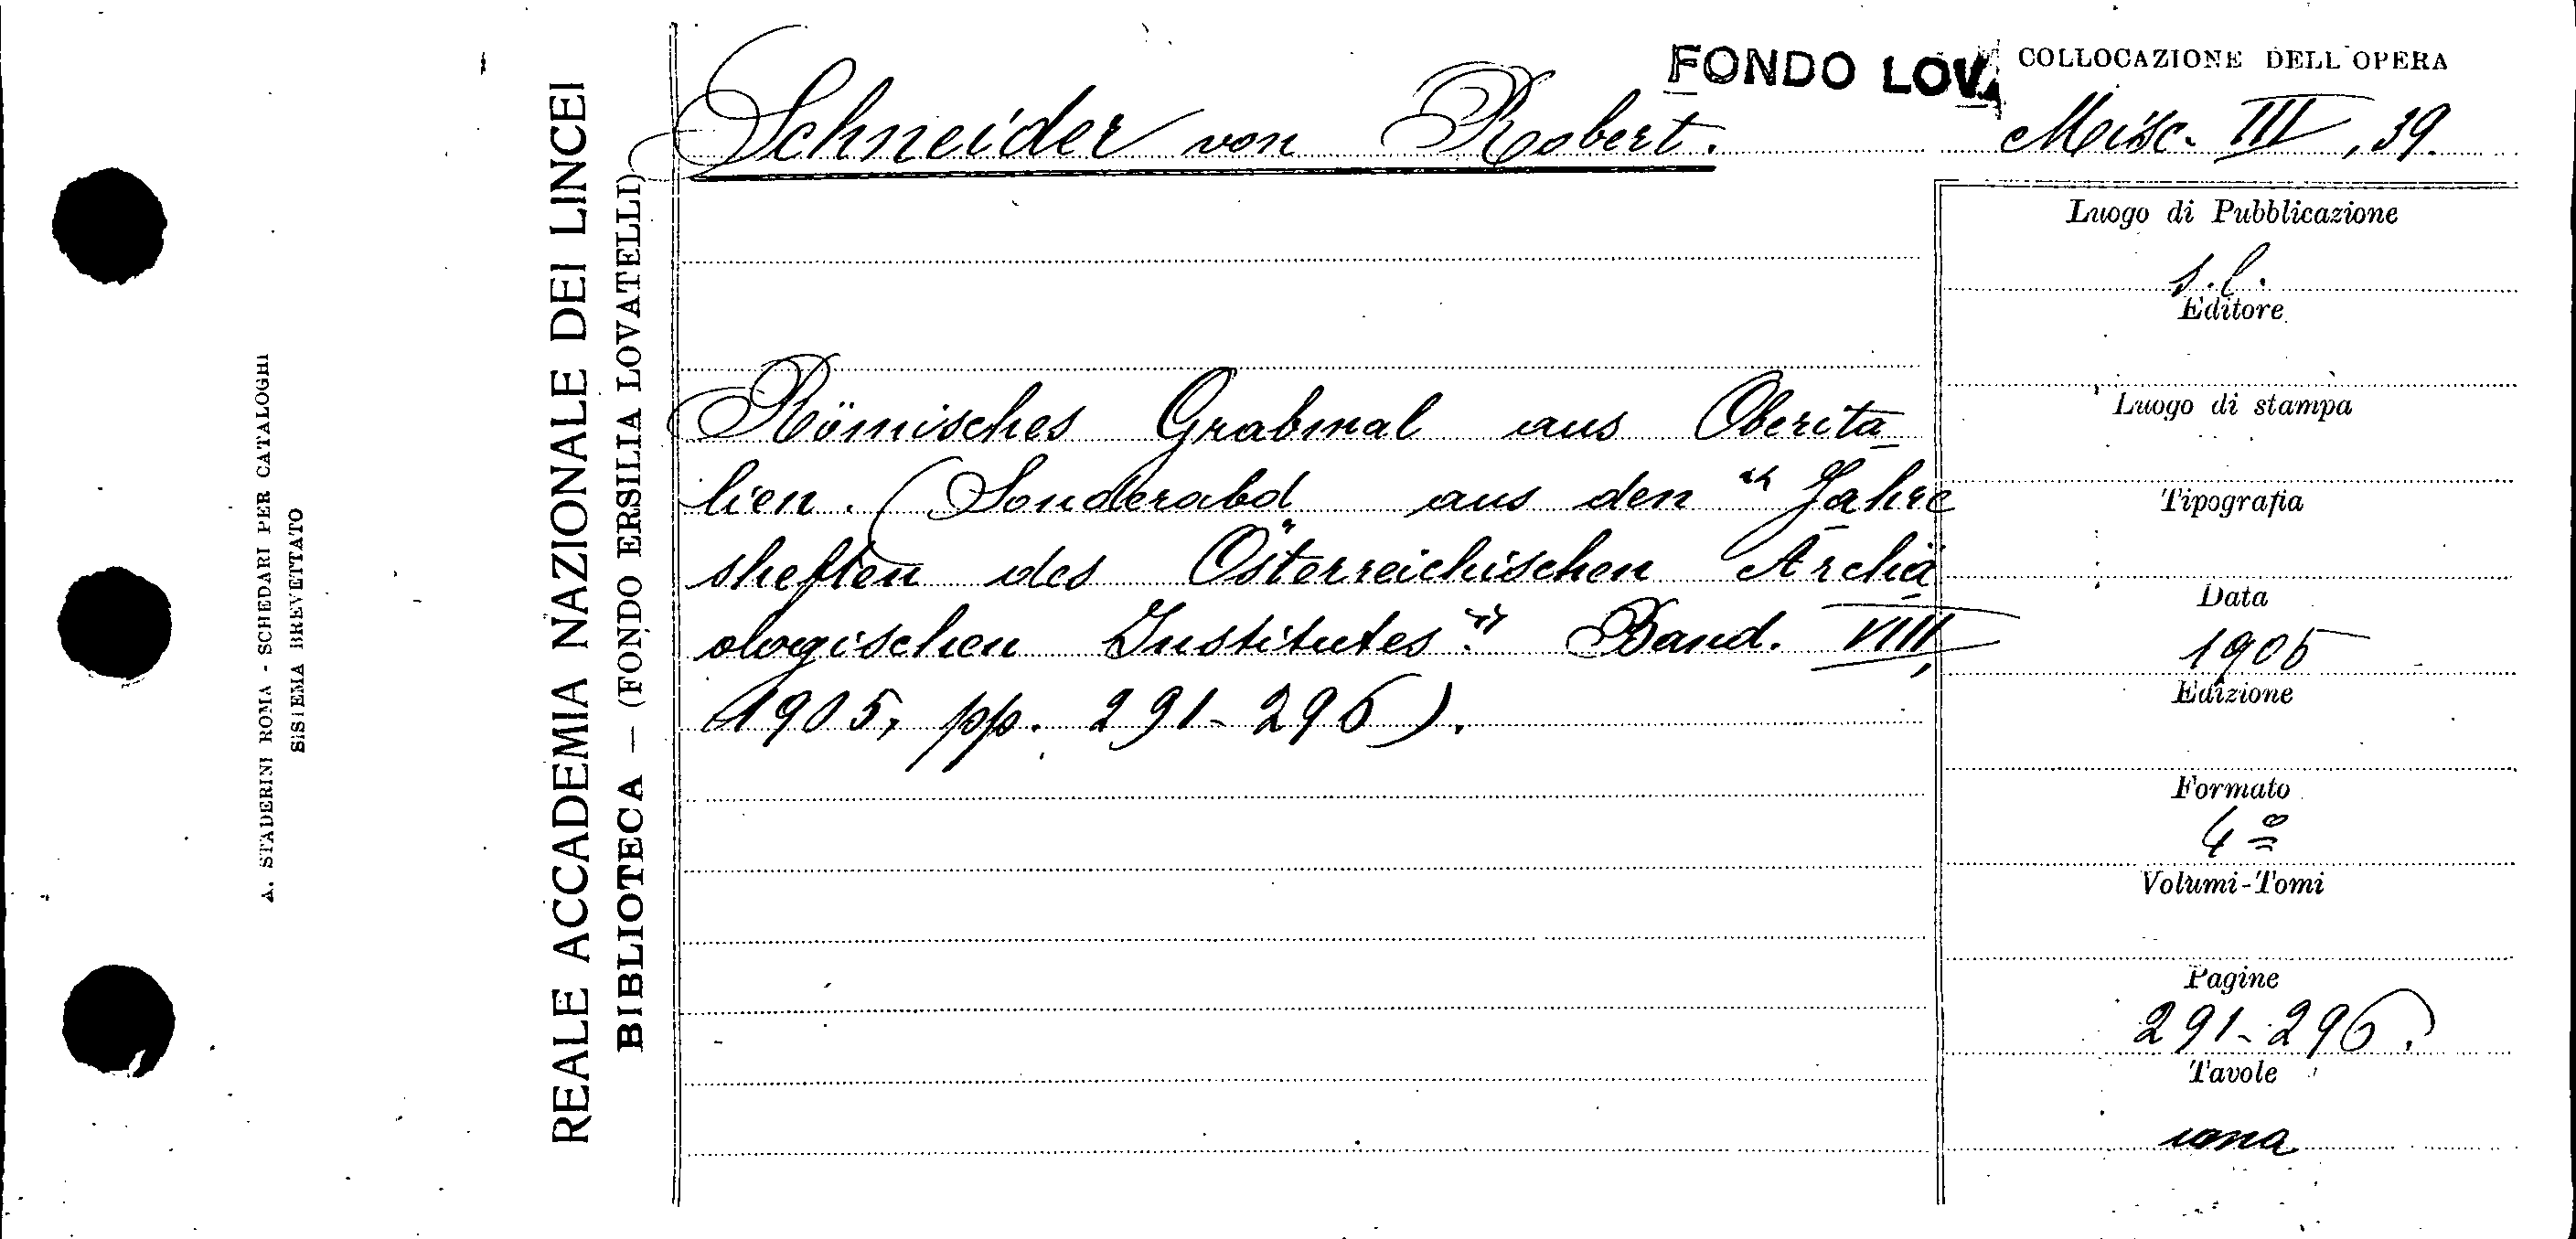 A. STADERINI ROMA - SCHEDARI PER CATALOGHI
SISTEMA BREVETTATO
REALE ACCADEMIA NAZIONALE DEI LINCEI
BIBLIOTECA — (FONDO ERSILIA LOVATELLI)
FONDO LOVA
COLLOCAZIONE DELL'OPERA
Schneider von Robert.
Misc. III, 39.
Römisches Grabmal aus Oberita
lien. (Sonderabd aus den "Jahre
sheften des Österreichischen Archä
ologischen Institutes" Band. VIII,
1905, pp. 291-296).
Luogo di Pubblicazione
s.l.
Editore
Luogo di stampa
Tipografia
Data
1905
Edizione
Formato
4º
Volumi-Tomi
Pagine
291-296.
Tavole
una